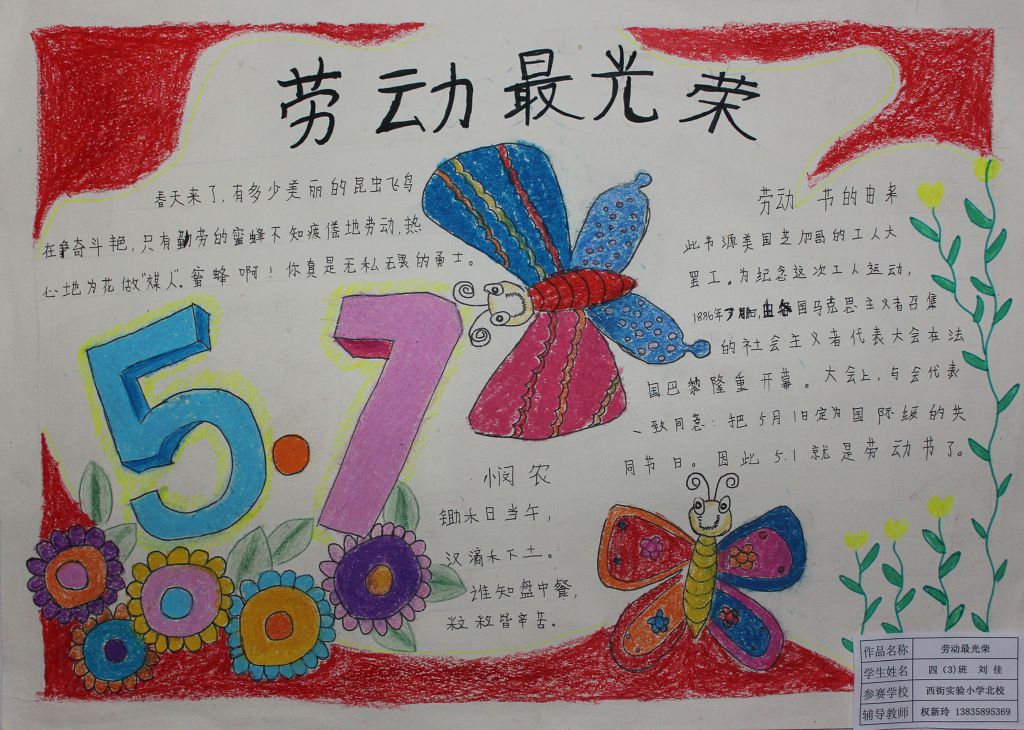 劳动最光荣
春天来了,有多少美丽的昆虫飞鸟
在争奇斗艳,只有勤劳的蜜蜂不知疲倦地劳动,热
心地为花做“媒人”。蜜蜂啊!你真是无私无畏的勇士。
5·1
劳动 节的由来
此节源美国芝加哥的工人大
罢工。为纪念这次工人运动,
1886年 国马克思主义者召集
的社会主义者代表大会在法
国巴黎隆重开幕。大会上,与会代表
一致同意:把5月1日定为国际级的共
同节日。因此5.1就是劳动节了。
悯农
锄禾日当午,
汉滴禾下土。
谁知盘中餐,
粒粒皆辛苦。
作品名称 劳动最光荣
学生姓名 四(3)班 刘佳
参赛学校 西街实验小学北校
辅导教师 权新玲 13835895369